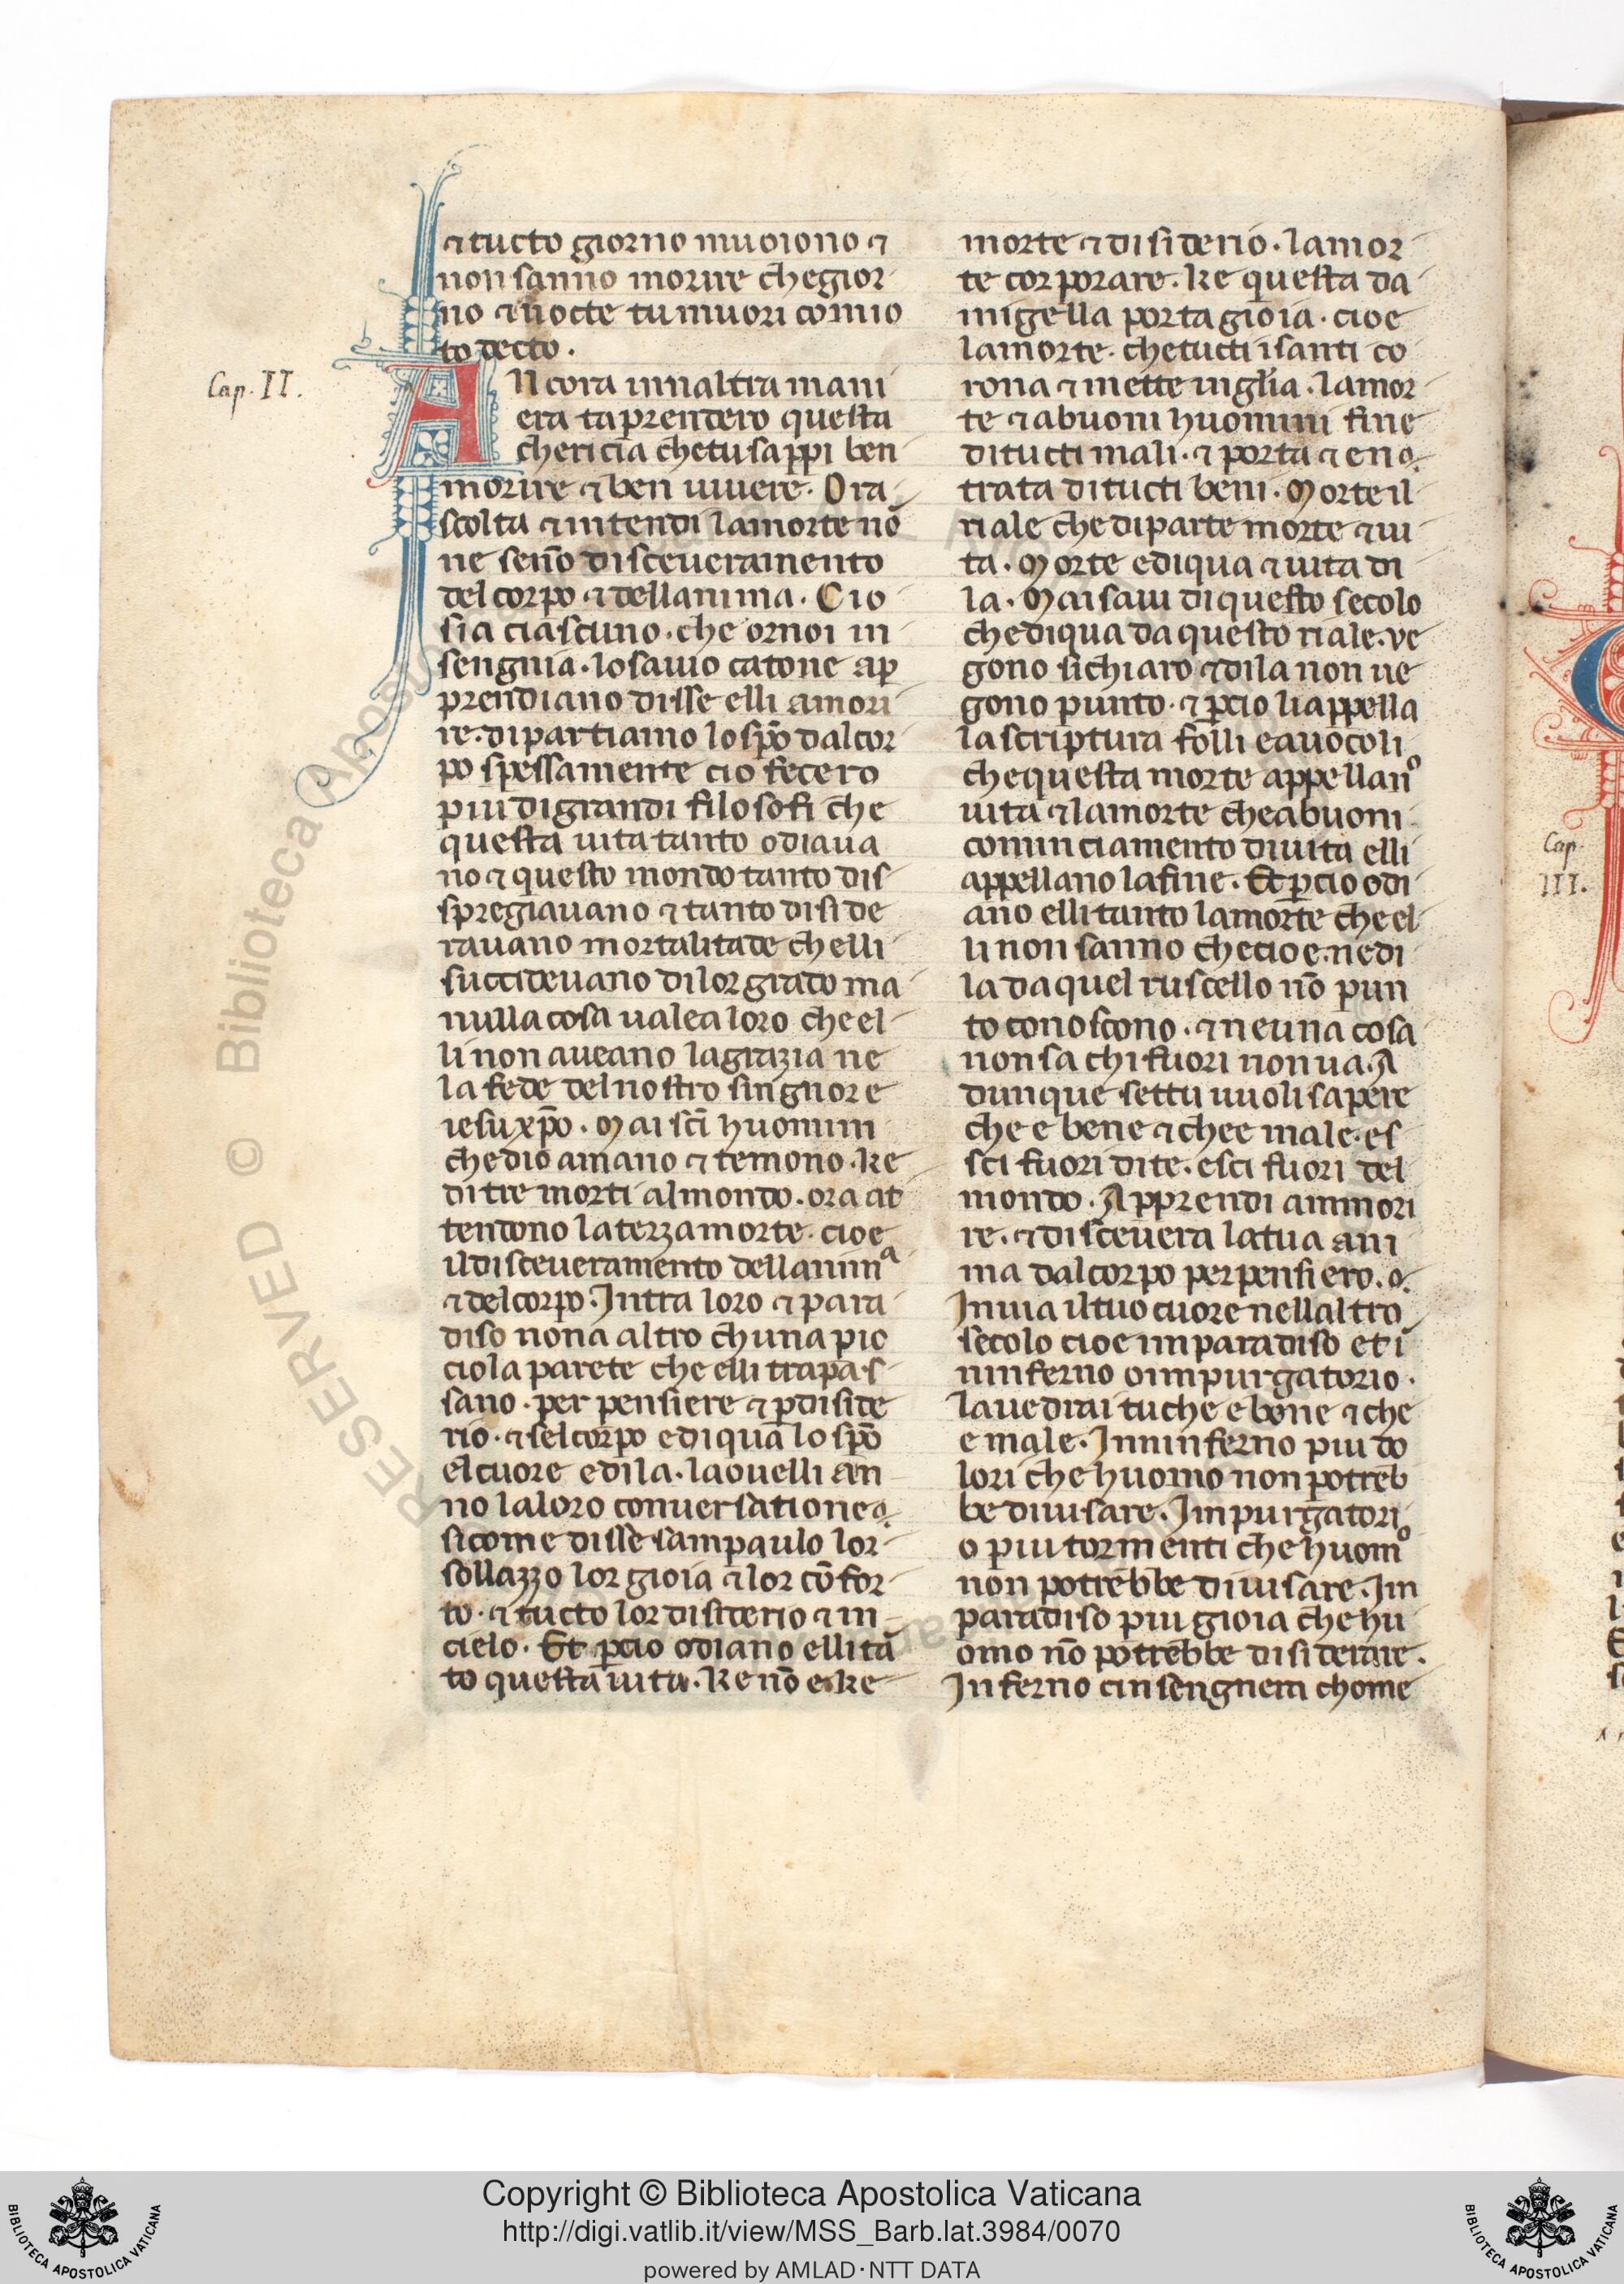 ⁊ tucto giorno muoiono ⁊
non sanno morire che gior
no ⁊ nocte tu muori comio
to decto.
Cap. II.
ANcora innaltra mani
era taprendero questa
chericia chetu sappi ben
morire ⁊ ben uiuere. Ora
scolta ⁊ intendi lamorte nō
ne sēno disceueramento
del corpo ⁊ dellanima. Cio
sia ciascuno. che ornoi in
sengnia. lo sauio catone ap
prendiano disse elli amori
re. dipartiamo lo sp̄o dal cor
po spessamente cio fecero
piu di grandi filosofi che
questa uita tanto odiaua
no ⁊ questo mondo tanto dis
spregiauano ⁊ tanto diside
rauano mortalitade chelli
succideuano di lor grado ma
nulla cosa ualea loro che el
li non aueano la grazia ne
la fede del nostro singnore
iesu xp̄o. Mai sc̄i huomini
che dio amano ⁊ temono. ke
di tre morti al mondo. ora at
tendono la terza morte. cioe
il disceueramento dellanimᵃ
⁊ del corpo. Intra loro ⁊ para
diso nona altro chuna pic
ciola parete che elli trapas
sano. per pensiere ⁊ ꝑ diside
rio. ⁊ sel corpo e di qua lo sp̄o
el cuore e di la. la ouelli an
no la loro conuersatione.
si come disse sampaulo lor
sollazzo lor gioia ⁊ lor cōfor
to. ⁊ tucto lor disiderio ⁊ in
cielo. Et ꝑcio odiano elli tā
to questa uita. ke nō e. ke
morte ⁊ disiderio. la mor
te corporare. ke questa da
migella porta gioia. cioe
lamorte. che tucti i santi co
rona ⁊ mette in glīa. lamor
te ⁊ a buoni huomini fine
di tucti mali. ⁊ porta ⁊ en
trata di tucti beni. Morte il
riale che diparte morte ⁊ ui
ta. Morte e di qua ⁊ uita di
la. Mai saui di questo secolo
che di qua da questo riale. ve
gono si chiaro ⁊ di la non ue
gono punto. ⁊ ꝑcio li appella
la scriptura folli e auocoli
che questa morte appellanº
uita ⁊ lamorte che a buoni
cominciamento di uita elli
appellano la fine. Et ꝑcio odi
ano elli tanto lamorte che el
li non sanno che cio e. ne di
la da quel ruscello nō pun
to conoscono. ⁊ neuna cosa
non sa chi fuori non ua. A
dunque settu uuoli sapere
che e bene ⁊ che e male. es
sci fuori di te. esci fuori del
mondo. Apprendi ammori
re. ⁊ disceuera la tua ani
ma dal corpo per pensiero.
Inuia il tuo cuore nellaltro
secolo cioe imparadiso et i
ninferno o impurgatorio.
La uedrai tu che e bene ⁊ che
e male. Inninferno piu do
lori che huomo non potreb
be diuisare. Impurgatori
o piu tormenti che huomº
non potrebbe diuisare. Im
paradiso piu gioia che hu
omo nō potrebbe disiderare.
Inferno cinsengnera chome
Cap.
III.
Copyright © Biblioteca Apostolica Vaticana
http://digi.vatlib.it/view/MSS_Barb.lat.3984/0070
powered by AMLAD·NTT DATA